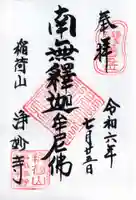 奉拝
令和六年
七月廿五日
南無釋迦牟尼佛
稲荷山
浄妙寺